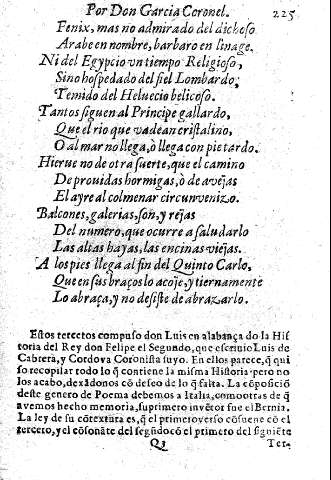 Por Don Garcia Coronel. 225
Fenix, mas no admirado del dichoso
Arabe en nombre, barbaro en linage.
Ni del Egypcio vn tiempo Religioso,
Sino hospedado del fiel Lombardo;
Temido del Heluecio belicoso.
Tantos siguen al Principe gallardo,
Que el rio que vadean cristalino,
O al mar no llega, ò llega con pie tardo.
Hierue no de otra suerte, que el camino
De prouidas hormigas, ò de avejas
El ayre al colmenar circunvenizo.
Balcones, galerias, son, y rejas
Del numero, que ocurre a saludarlo
Las altas hayas, las encinas viejas.
A los pies llega al fin del Quinto Carlo,
Que en sus braços lo acoje, y tiernamente
Lo abraça, y no desiste de abrazarlo.
Estos tercetos compuso don Luis en alabança de la His
toria del Rey don Felipe el Segundo, que escriuio Luis de
Cabrera, y Cordova Coronista suyo. En ellos parece, q̃ qui
so recopilar todo lo q̃ contiene la misma Historia pero no
los acabo, dexãdonos cõ deseo de lo q̃ falta. La cõposiciõ
deste genero de Poema debemos a Italia, como otras de q̃
avemos hecho memoria, su primero invẽtor fue el Bernia.
La ley de su cõtextura es, q̃ el primero verso cõsuene cõ el
tercero, y el cõsonãte del segũdo cõ el primero del siguiẽte
Q3 Ter-